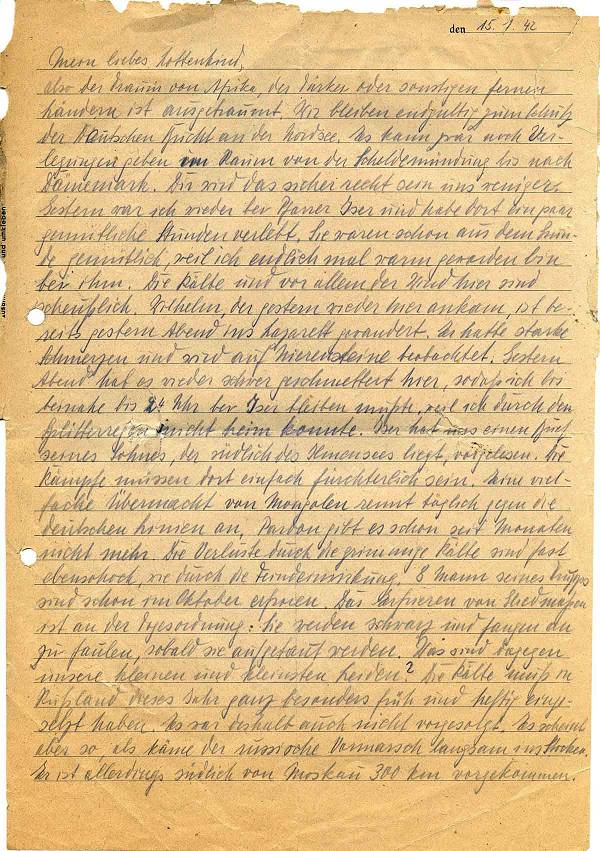 den 15. 1. 42
Mein liebes Lottenkind,
also der Traum von Afrika, der Türkei oder sonstigen fernen
Ländern ist ausgeträumt. Wir bleiben endgültig zum Schutz
der Deutschen Bucht an der Nordsee. Es kann zwar noch Ver-
legungen geben im Raum von der Scheldemündung bis nach
Dänemark. Dir wird das sicher recht sein uns weniger.
Gestern war ich wieder bei Pfarrer Iser und habe dort ein paar
gemütliche Stunden verlebt. Sie waren schon aus dem Grun-
de gemütlich, weil ich endlich mal warm geworden bin
bei ihm. Die Kälte und vor allem der Wind hier sind
scheußlich. Wilhelm, der gestern wieder hier ankam, ist be-
reits gestern Abend ins Lazarett gewandert. Er hatte starke
Schmerzen und wird auf Nierensteine beobachtet. Gestern
Abend hat es wieder schwer geschmettert hier, sodaß ich bis
beinahe bis 24 Uhr bei Iser bleiben mußte, weil ich durch den
Splitterregen nicht heim konnte. Iser hat uns einen Brief
seines Sohnes, der südlich des Ilmensees liegt, vorgelesen. Die
Kämpfe müssen dort einfach fürchterlich sein. Eine viel-
fache Übermacht von Mongolen rennt täglich gegen die
deutschen Linien an. Pardon gibt es schon seit Monaten
nicht mehr. Die Verluste durch die grimmige Kälte sind fast
ebensohoch, wie durch die Feindeinwirkung. 8 Mann seines Trupps
sind schon im Oktober erfroren. Das Erfrieren von Gliedmaßen
ist an der Tagesordnung: Sie werden schwarz und fangen an
zu faulen, sobald sie aufgetaut werden. Was sind dagegen
unsere kleinen und kleinsten Leiden? Die Kälte muß in
Rußland dieses Jahr ganz besonders früh und heftig einge-
setzt haben. Es war deshalb auch nicht vorgesorgt. Es scheint
aber so, als käme der russische Vormarsch langsam ins Stocken.
Er ist allerdings südlich von Moskau 300 km vorgekommen.
und umkleben